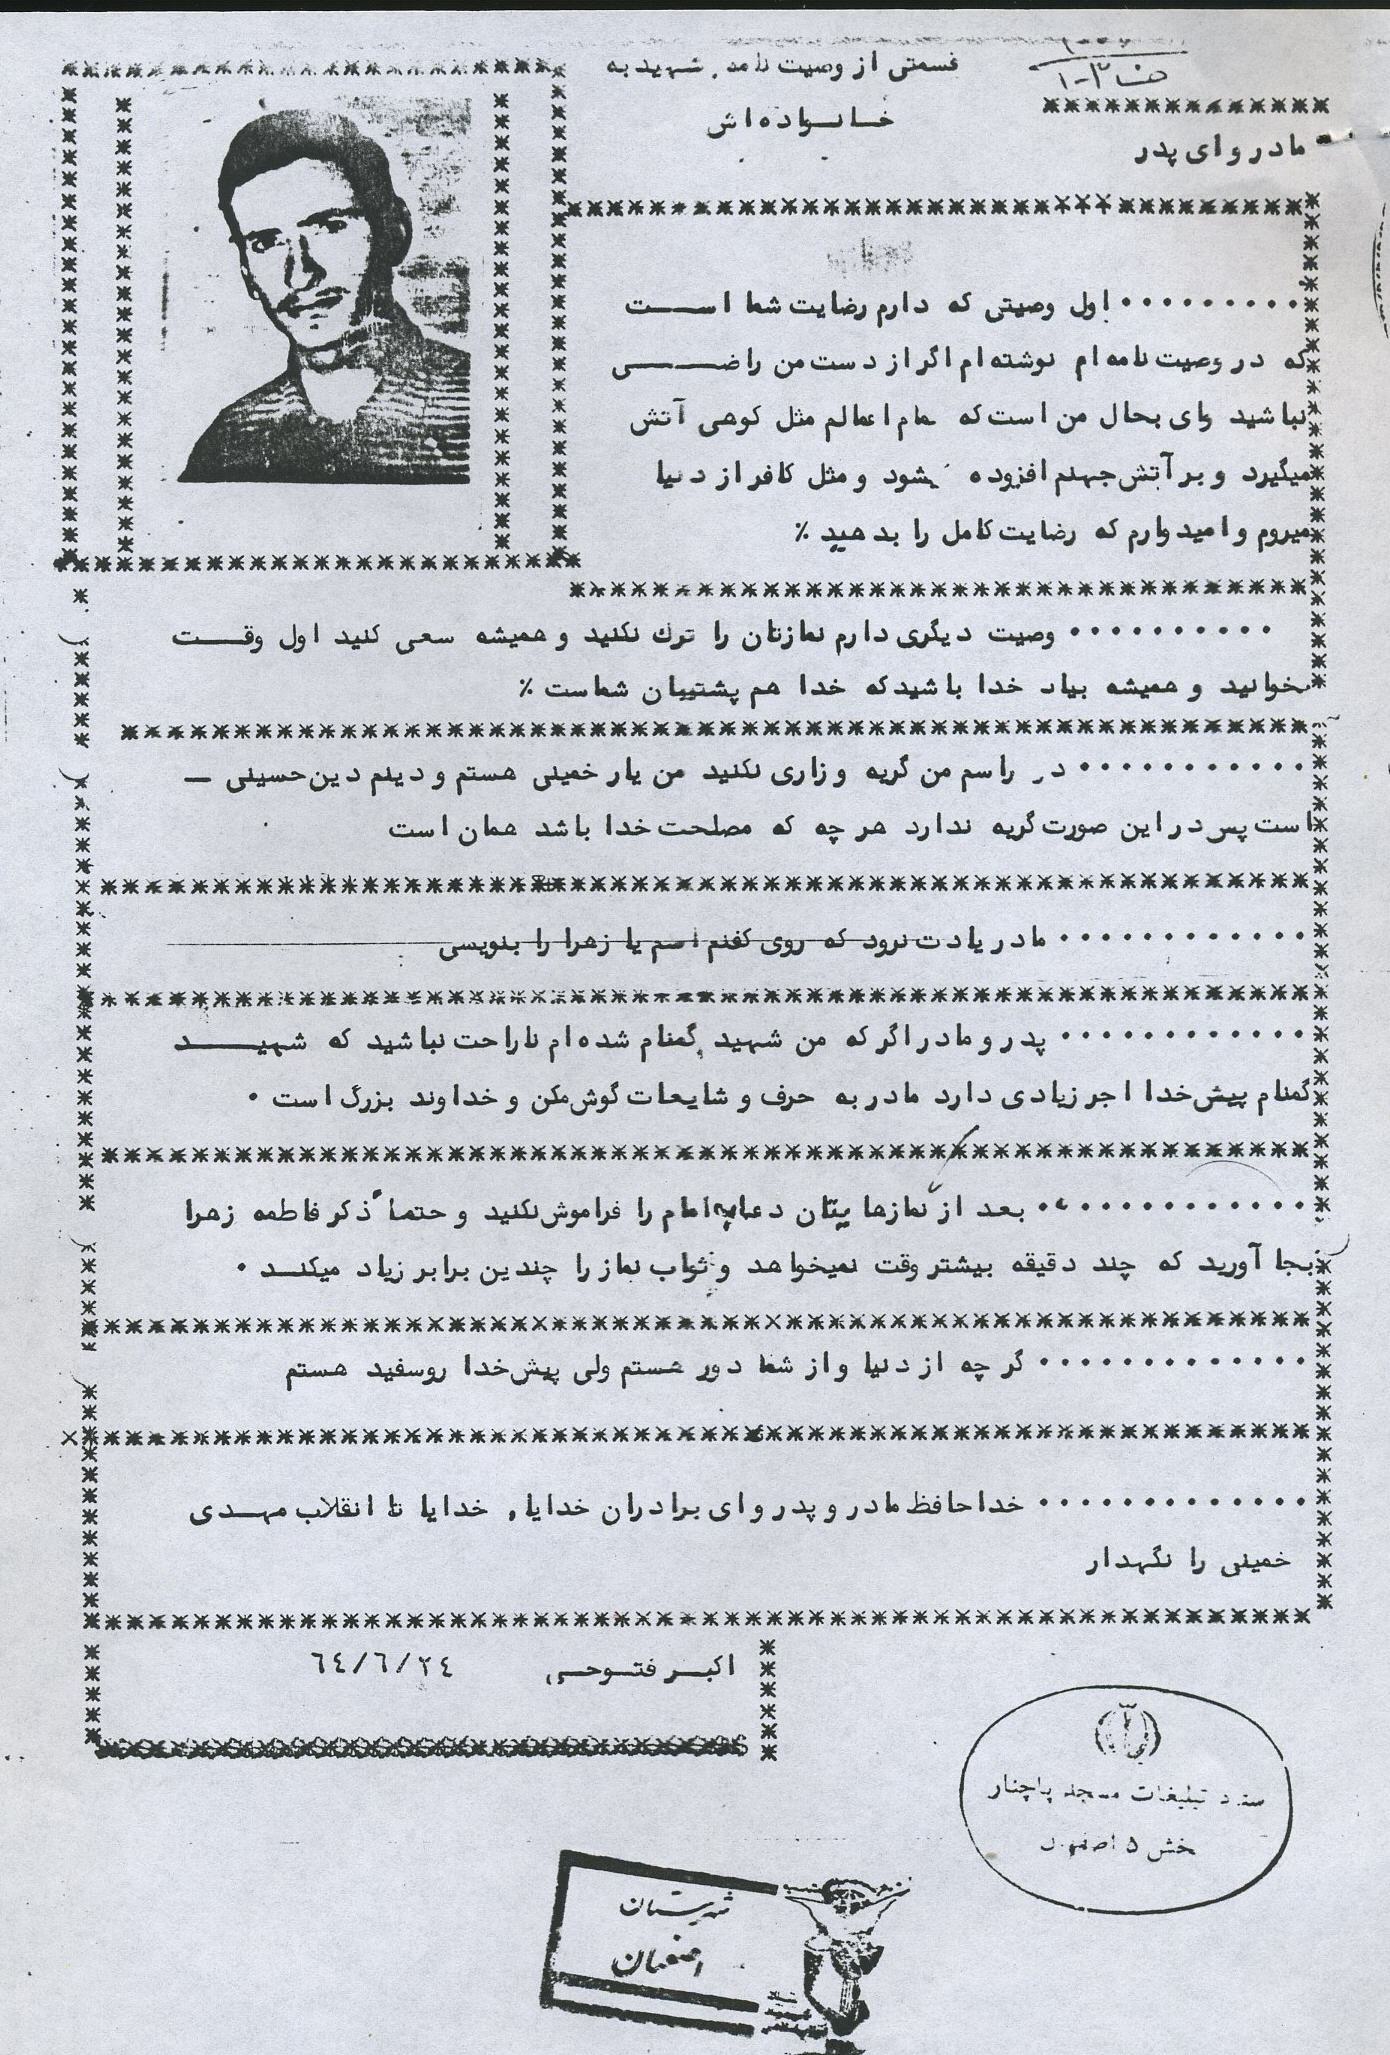 قسمتی از وصیت نامه شهید به
خانواده‌اش
مادر و ای پدر
اول وصیتی که دارم رضایت شما است
که در وصیت نامه ام نوشته ام اگر از دست من راضی
نباشید وای بحال من است که تمام اعمالم مثل کوهی آتش
میگیرد و بر آتش جهنم افزوده میشود و مثل کافر از دنیا
میروم و امیدوارم که رضایت کامل را بدهید ٪
وصیت دیگری دارم نمازتان را ترک نکنید و همیشه سعی کنید اول وقت
بخوانید و همیشه بیاد خدا باشید که خدا هم پشتیبان شماست ٪
در راسم من گریه و زاری نکنید من یار خمینی هستم و دینم دین حسینی —
است پس در این صورت گریه ندارد هر چه که مصلحت خدا باشد همان است
مادر یادت نرود که روی کفنم اسم یا زهرا را بنویسی
پدر و مادر اگر که من شهید گمنام شده ام ناراحت نباشید که شهید
گمنام پیش خدا اجر زیادی دارد مادر به حرف و شایعات گوش مکن و خداوند بزرگ است ۰
بعد از نمازهایتان دعابه امام را فراموش نکنید و حتماً ذکر فاطمه زهرا
بجا آورید که چند دقیقه بیشتر وقت نمیخواهد و ثواب نماز را چندین برابر زیاد میکند ۰
گر چه از دنیا و از شما دور هستم ولی پیش خدا روسفید هستم
خداحافظ مادر و پدر و ای برادران خدایا, خدایا تا انقلاب مهدی
خمینی را نگهدار
اکبر فتوحی ٦٤/٦/٢٤
ستاد تبلیغات مسجد پاچنار
بخش ۵ اصفهان
شهرستان
اصفهان